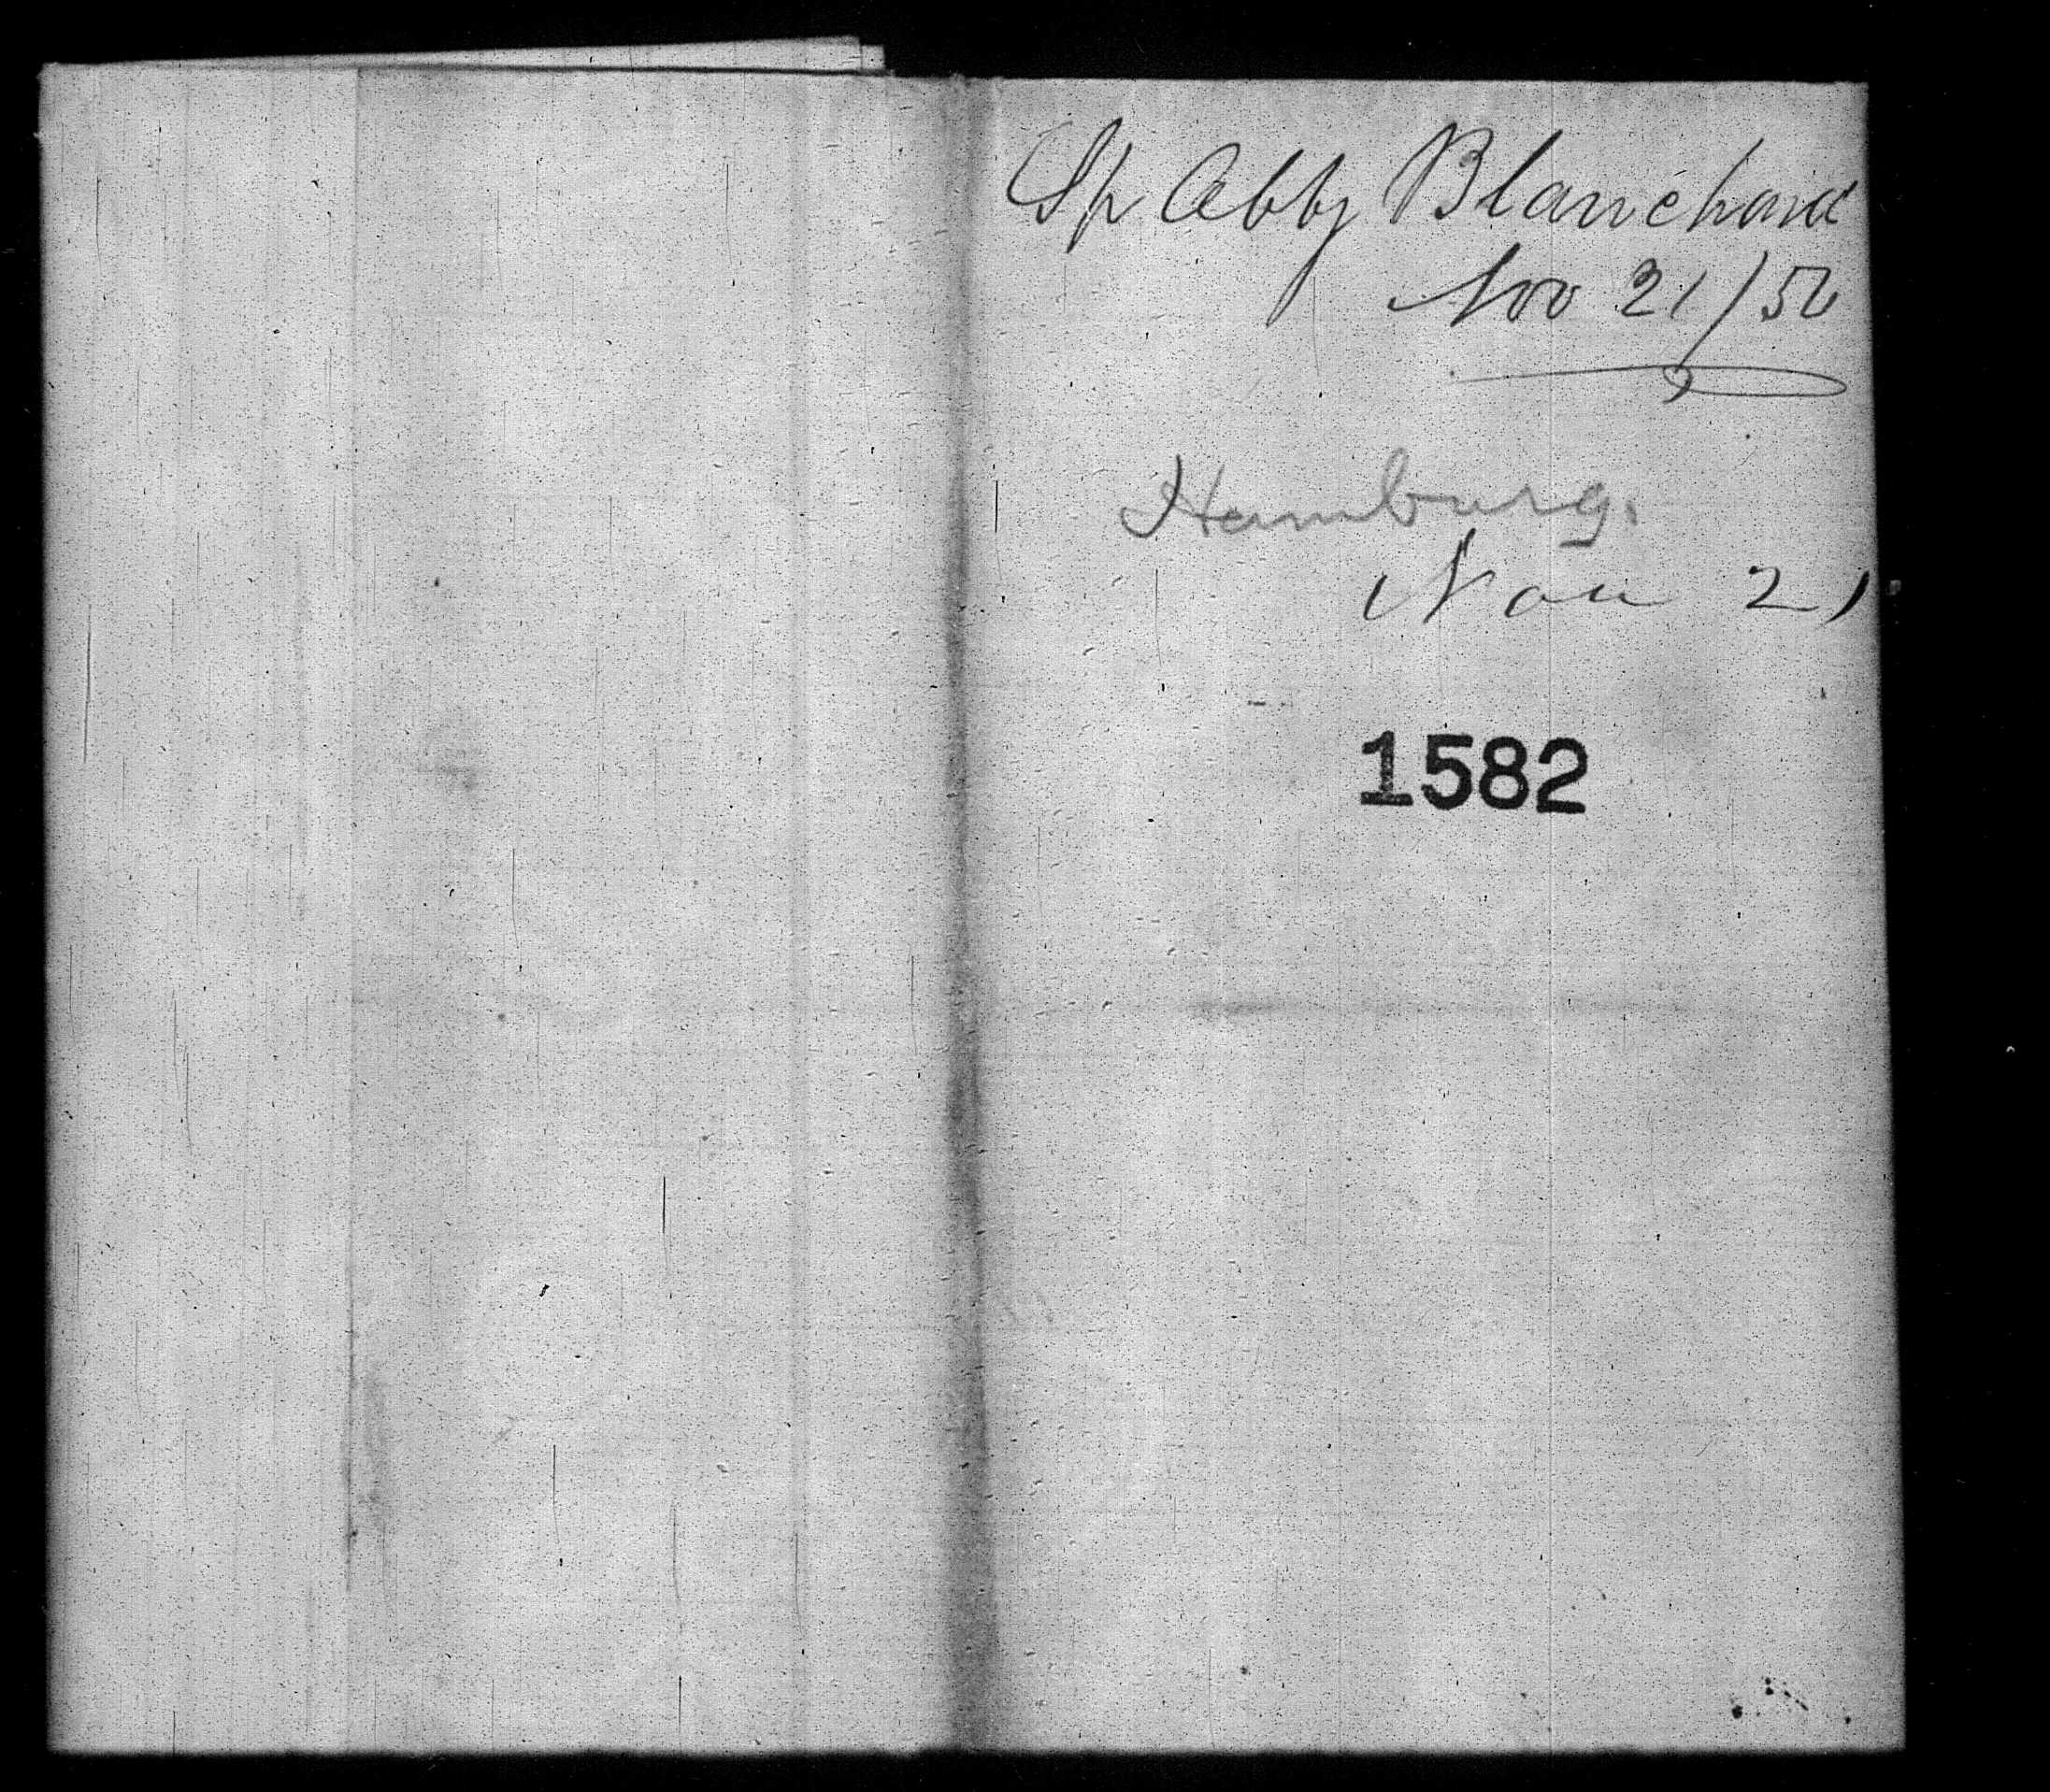 Sp Abby Blanchard
Nov 21/50
Hamburg.
Nov 21
1582